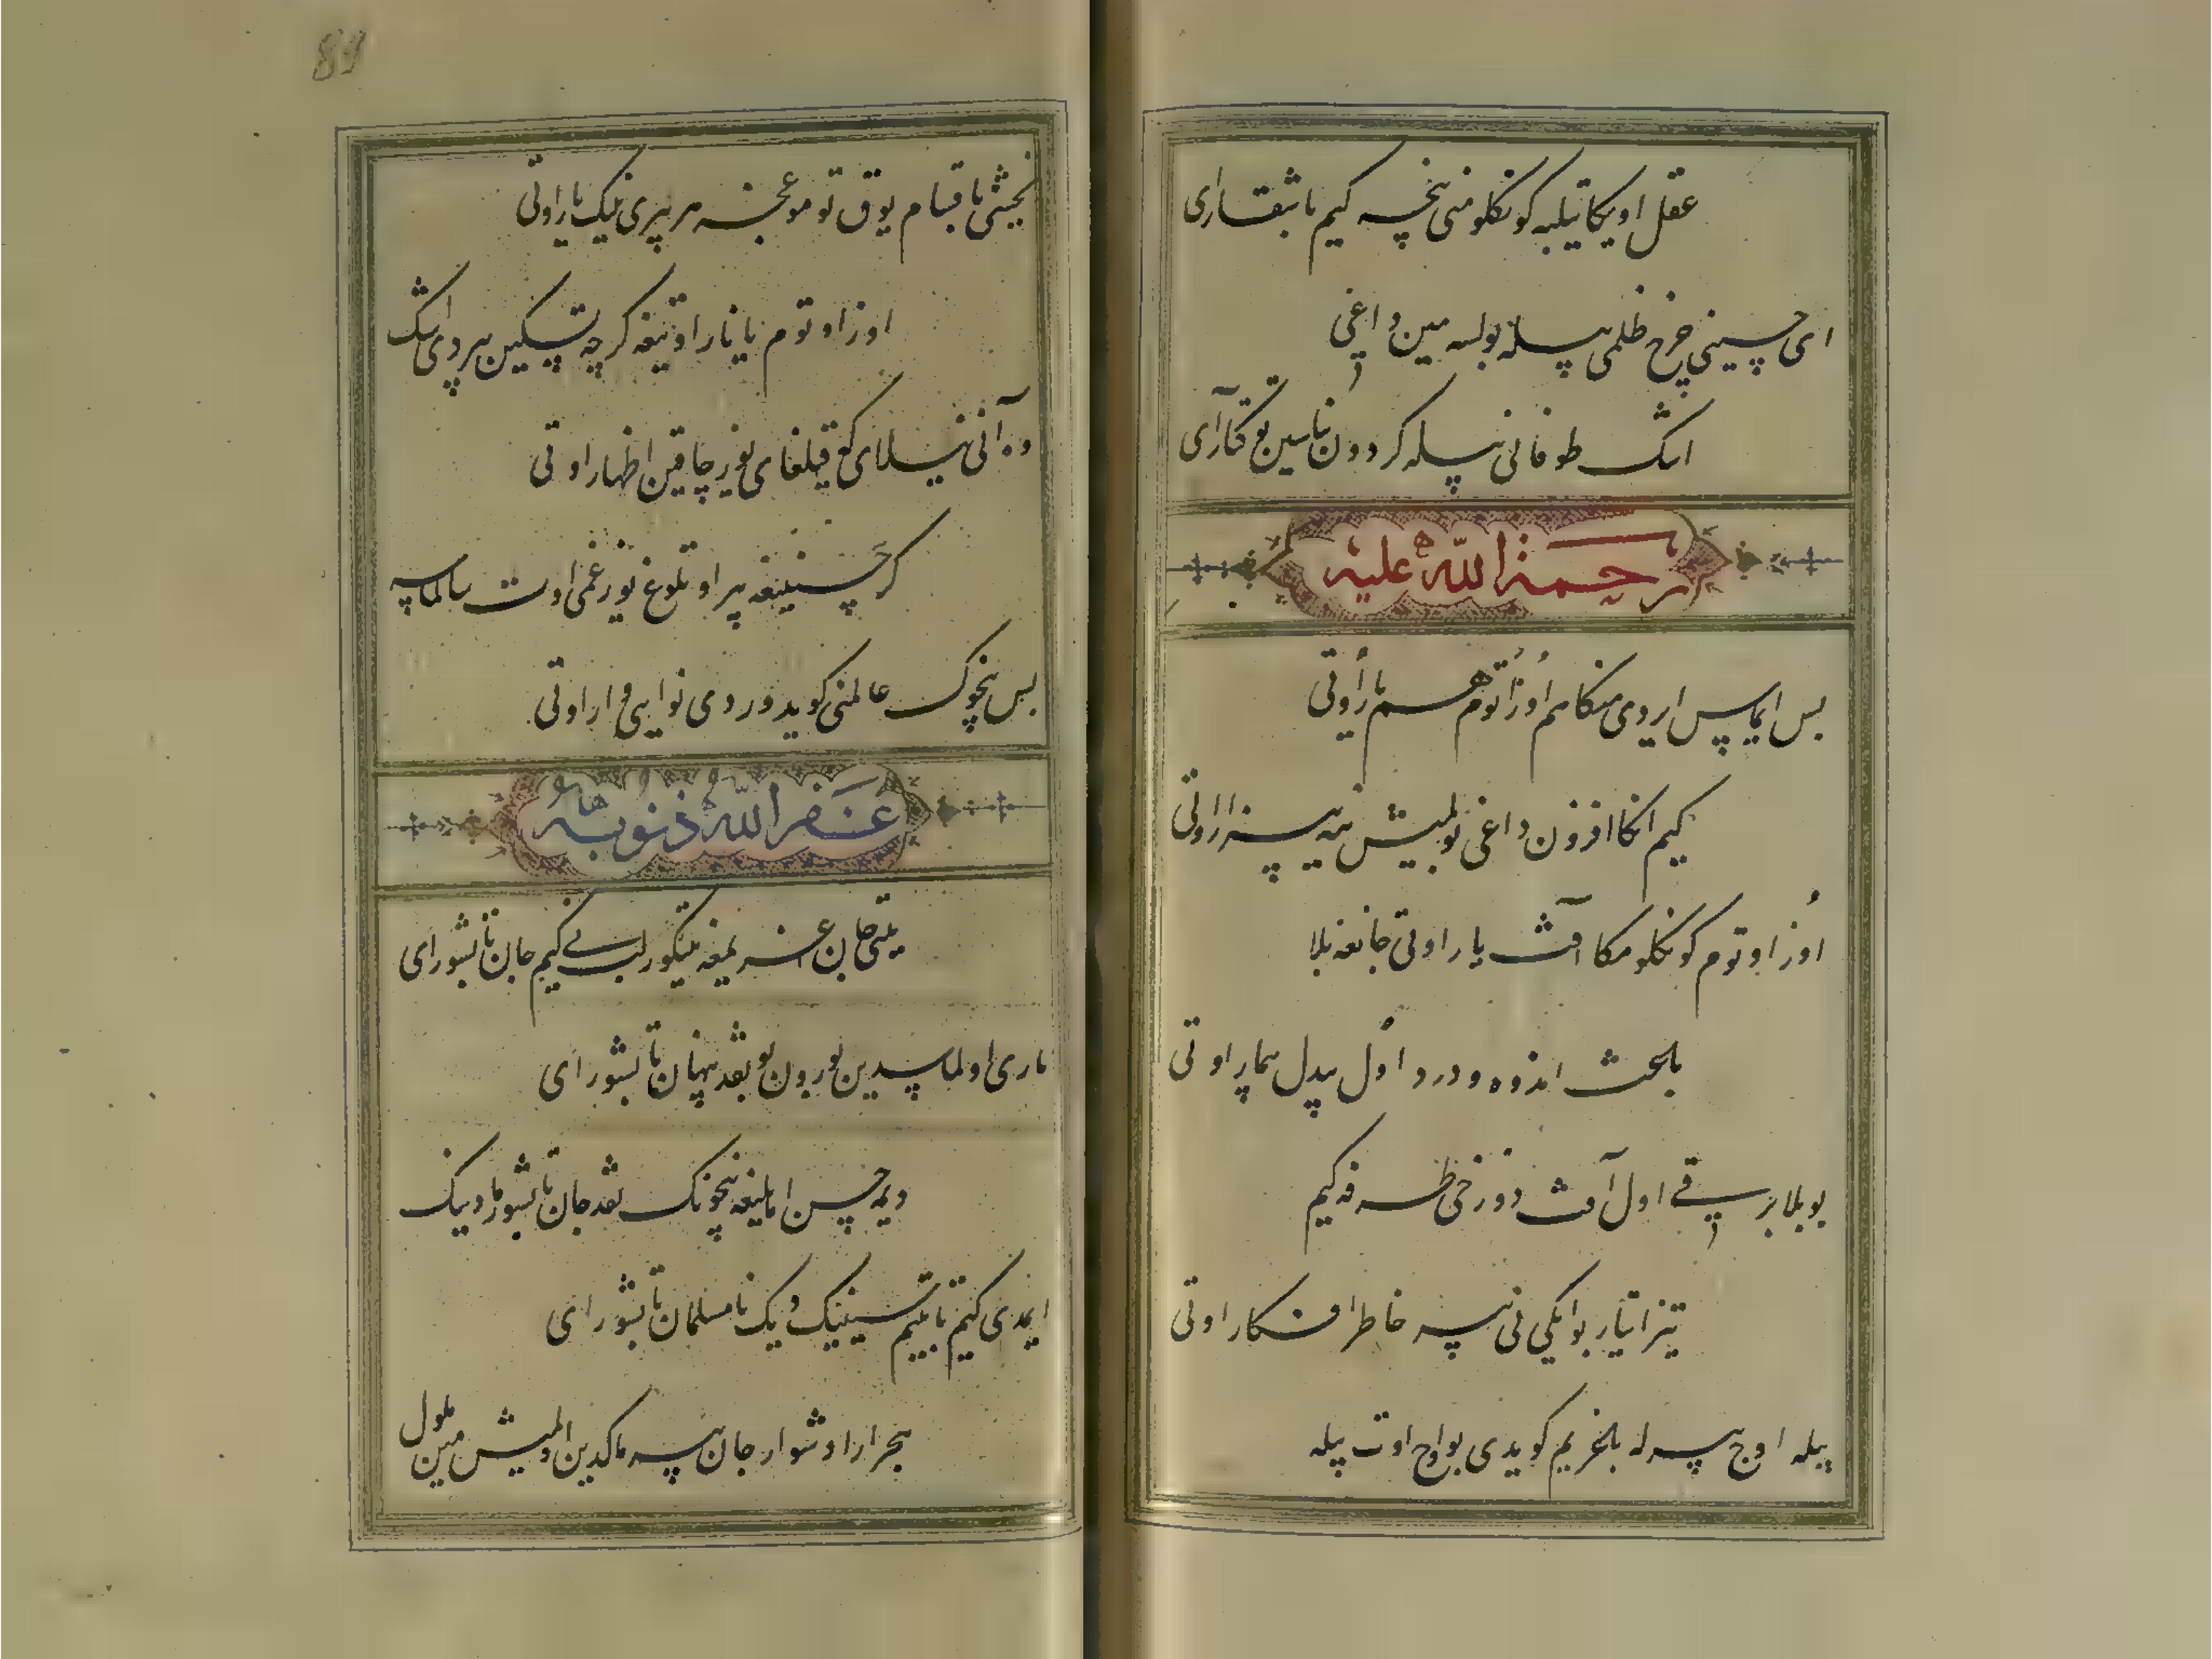 عقل اویکا تیلبه کونکلومنی نچه کیم باشقاری
ای حسینی چرخ ظلمی بیله بولسه مین داغی
اشک طوفانی بیله کردون بناسین توکتاری
رحمة الله علیه
بس ایماس ایردی منکا هم اوز اوتوم هم یار اوتی
کیم انکا افزون داغی بولمیش نیه سیزار اوتی
اوز اوتوم کونکلومکا آفت یار اوتی جانغه بلا
بلعث اندوه و درد اول بیدل بیمار اوتی
بو بلا برقی اول آفت دوزخی طرفه کیم
تیز ایتار بو ایکی نی بیه خاطر افکار اوتی
بیله اوچ بیله بلخریم کویدی بو اوچ اوت بیله
یخشی باقسام یوق توموغنچه هر بیری نینک یار اوتی
اوز اوتوم یا یار اوتیغه کرچه تسکین بیردی اشک
وه آنی نیلای که قیلغای یوز چاقین اظهار اوتی
کر حسینیغه بیر اوتلوغ یوز غمی اوت سالماسه
بس نچوک عالمنی کویدوردی نوایی وار اوتی
غفر الله ذنوبه
یتتی جان عزیمغه تیکور لب نی کیم جان تابشورای
باری اولماسدین بورون بوبغد پنهان تابشورای
دیمه حسن امانیغه نچونک نقد جان تابشورمادینک
ایمدی کیتم تابتیم سینینک دیک نامسلمان تابشورای
هجر ارا دشوار جان بیرماکدین اولمیش مین ملول